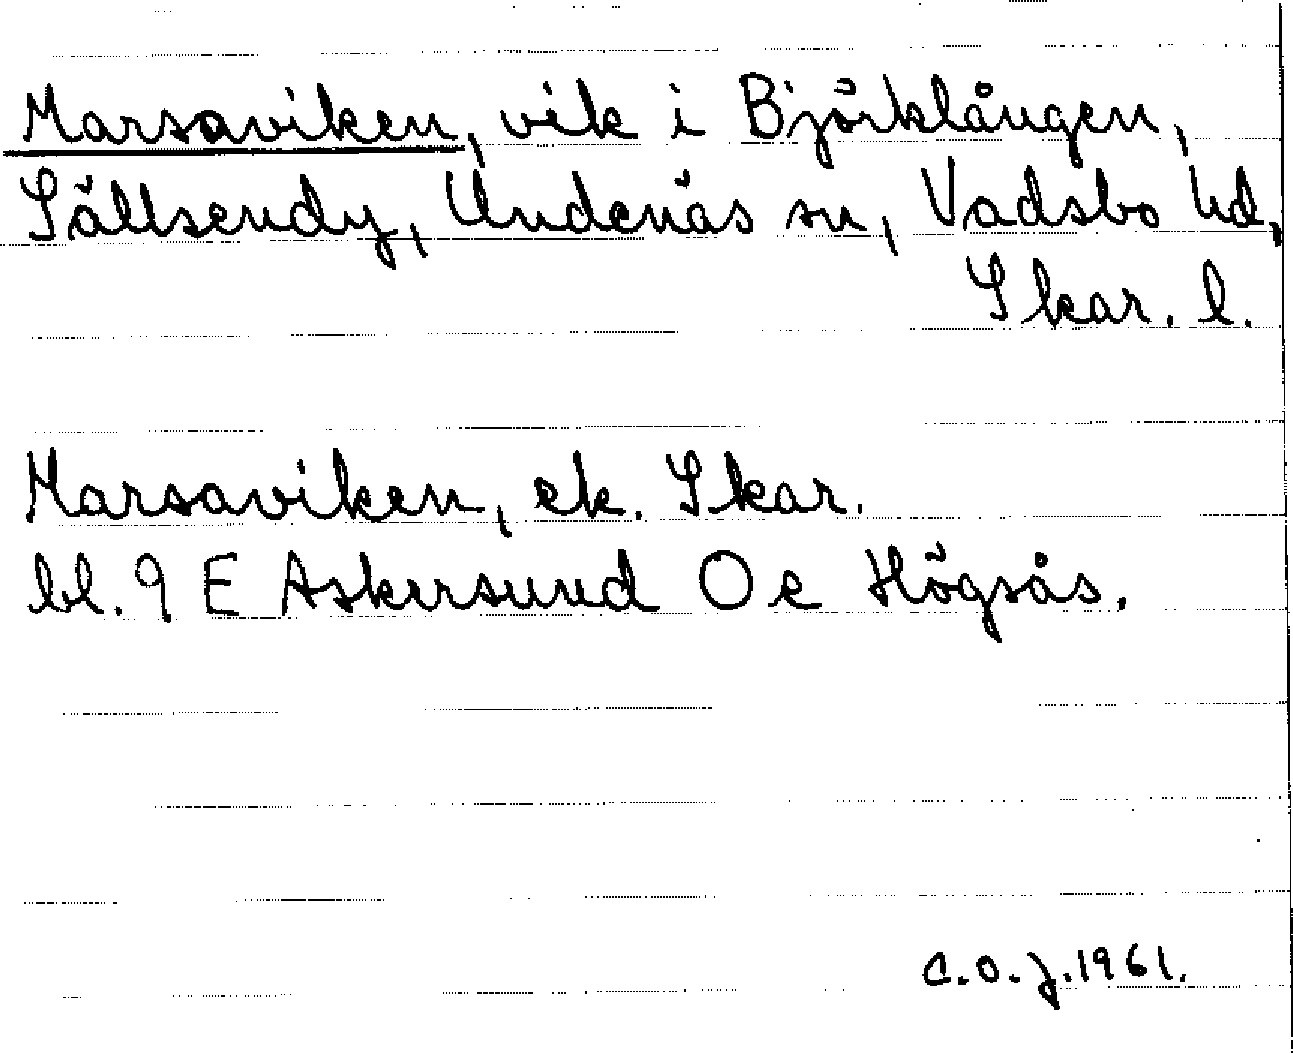 Marsaviken, vik i Björklången,
Sällsendy, Undenäs sn, Vadsbo hd,
Skar. l.
Marsaviken, ek. Skar.
bl. 9 E Askersund O e Högsås.
C.O.J. 1961.